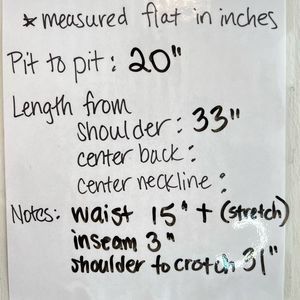 * measured flat in inches
Pit to pit: 20"
Length from
shoulder: 33"
center back:
center neckline:
Notes: waist 15" + (stretch)
inseam 3"
shoulder to crotch 31"